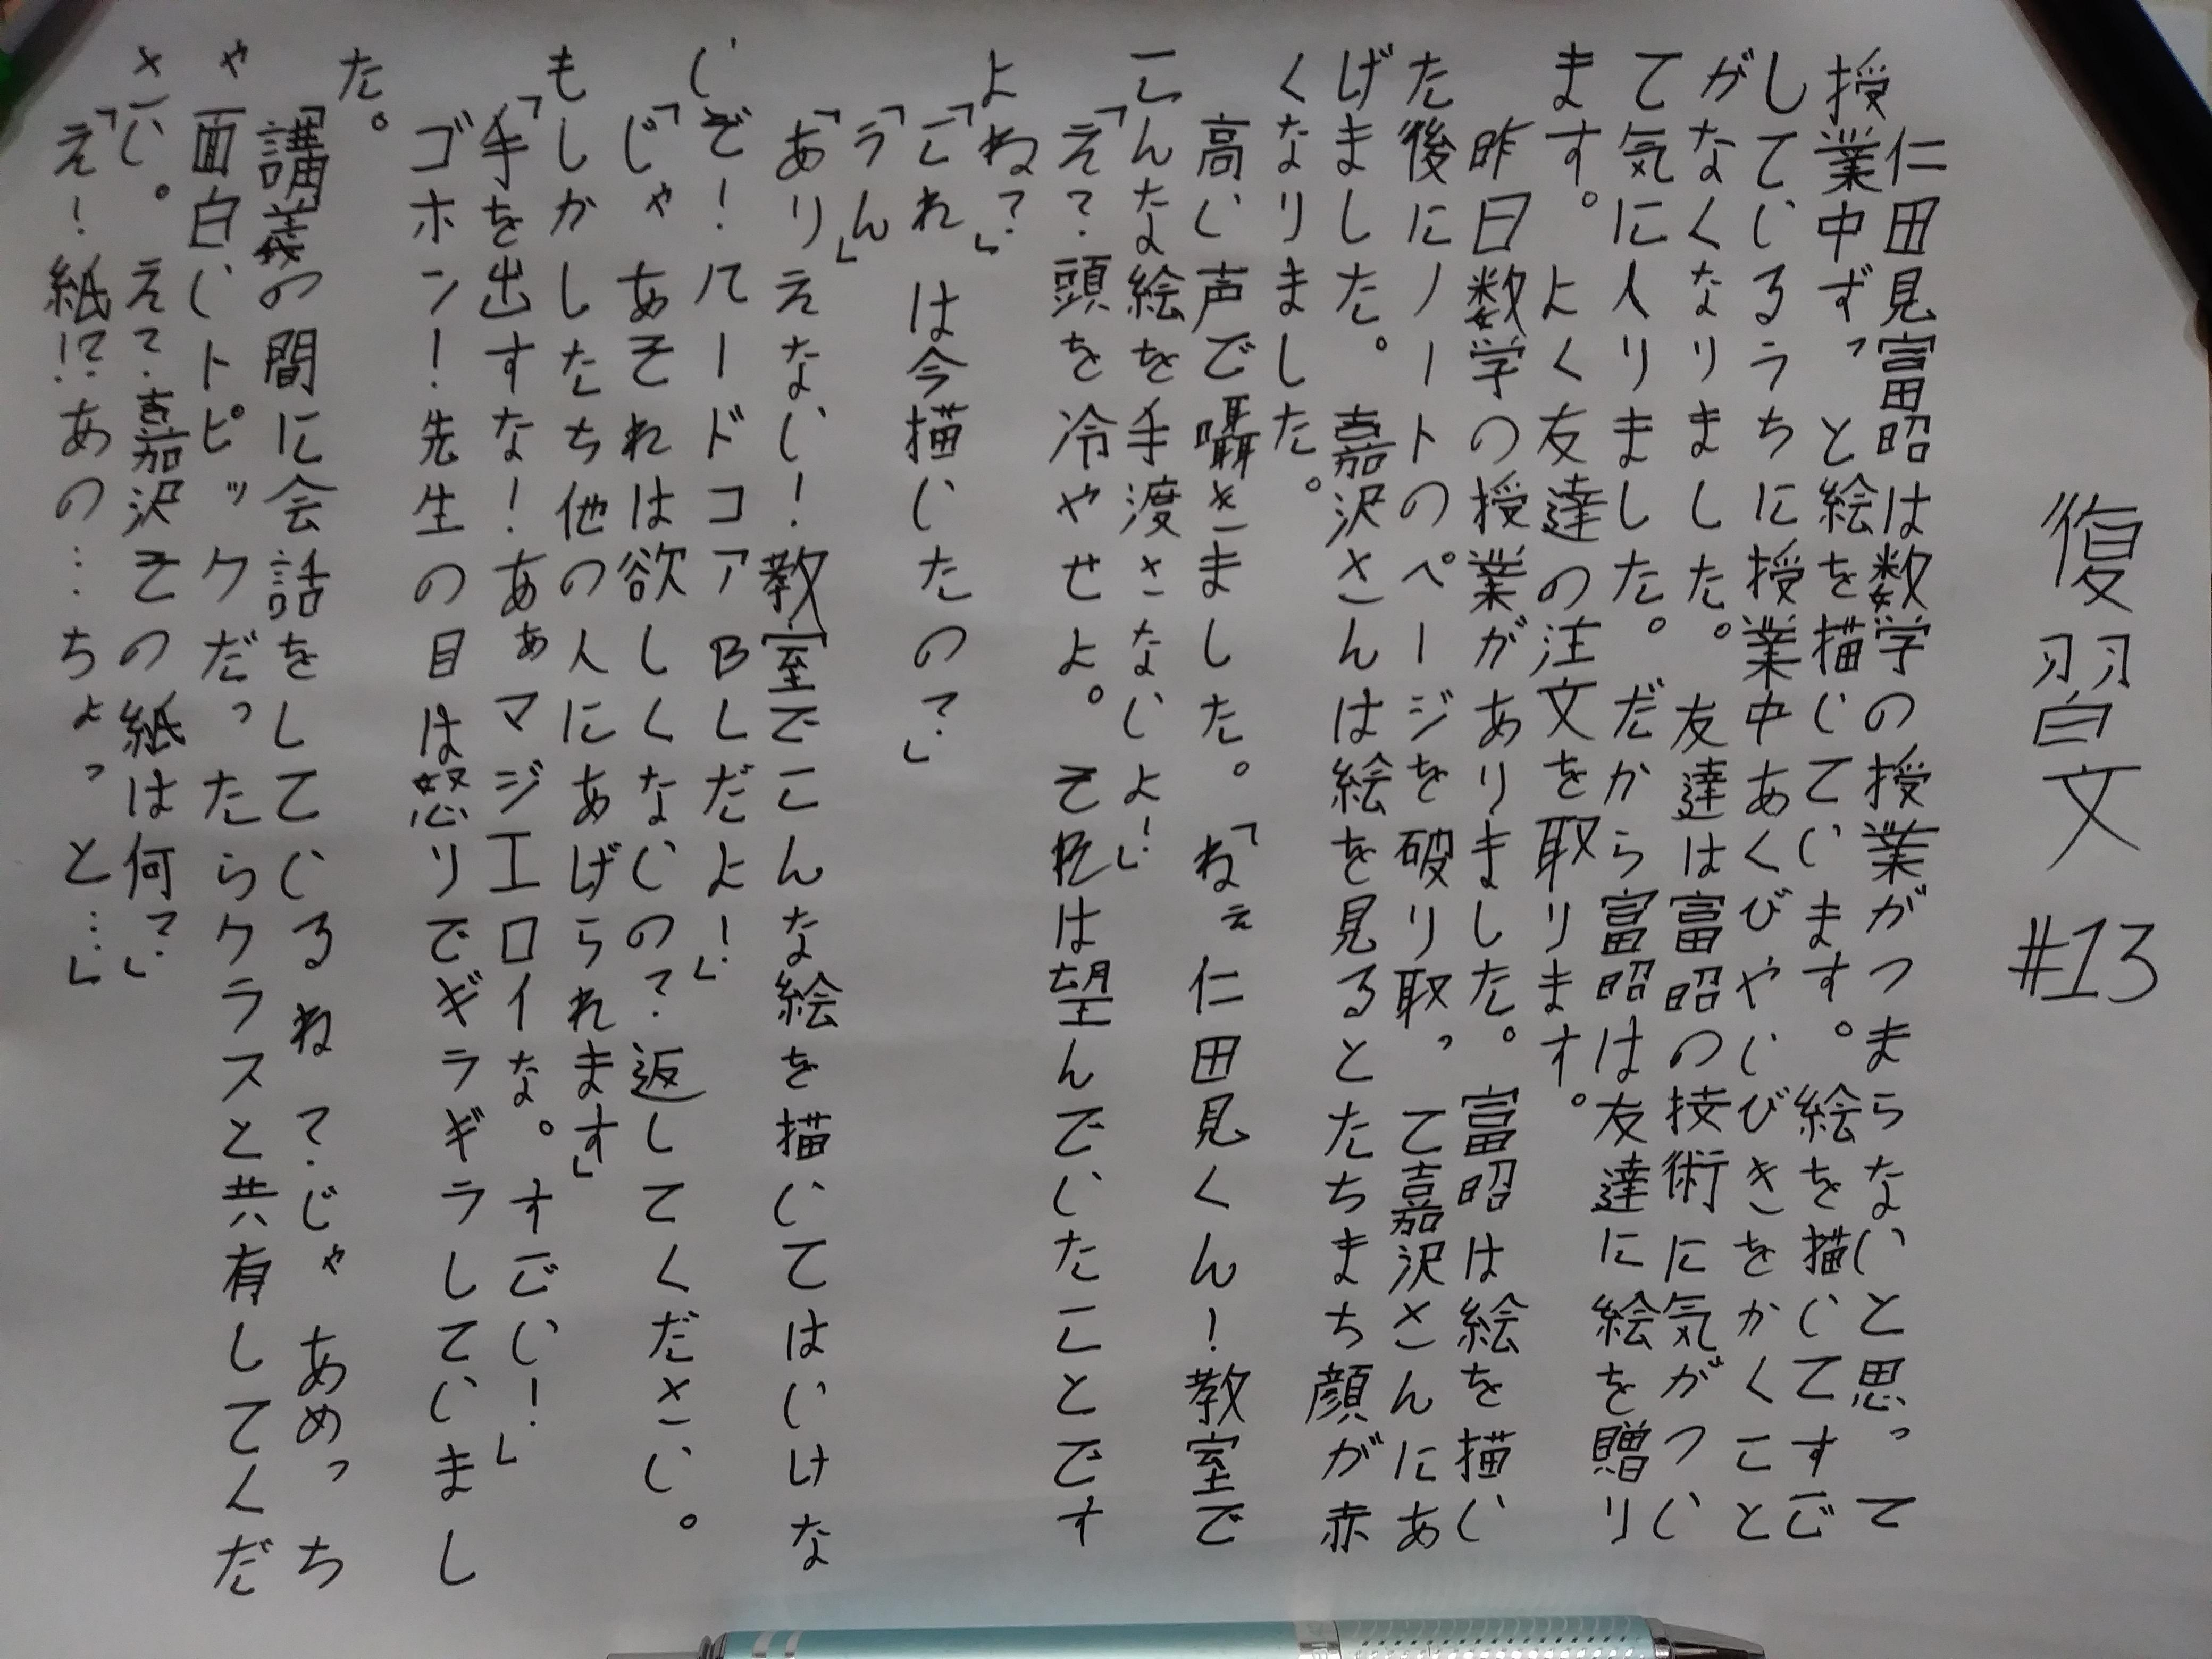 復習文 #13
仁田見富昭は数学の授業がつまらないと思って
授業中ずっと絵を描いています。絵を描いてすご
しているうちに授業中あくびやいびきをかくこと
がなくなりました。友達は富昭の技術に気がつい
て気に入りました。だから富昭は友達に絵を贈り
ます。よく友達の注文を取ります。
昨日数学の授業がありました。富昭は絵を描い
た後にノートのページを破り取って嘉沢さんにあ
げました。嘉沢さんは絵を見るとたちまち顔が赤
くなりました。
高い声で囁きました。「ねぇ仁田見くん!教室で
こんな絵を手渡さないよ!」
「え?頭を冷やせよ。それは望んでいたことです
よね?」
「これは今描いたの?」
「うん」
「ありえない!教室でこんな絵を描いてはいけな
いぞ!ハードコアBLだよ!」
「じゃあそれは欲しくないの?返してください。
もしかしたら他の人にあげられます」
「手を出すな!あぁマジエロイな。すごい!」
ゴホン!先生の目は怒りでギラギラしていまし
た。
「講義の間に会話をしているね?じゃあめっち
ゃ面白いトピックだったらクラスと共有してくだ
さい。え?嘉沢その紙は何?」
「え!紙!?あの…ちょっと…」